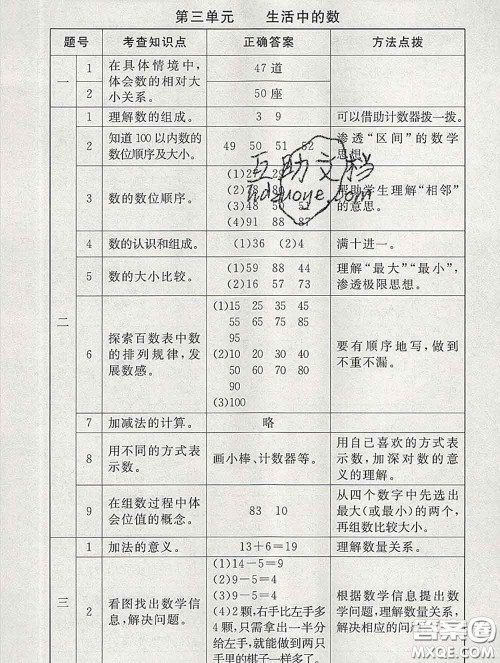 第三单元 生活中的数
题号 考查知识点 正确答案 方法点拨
一
1 在具体情境中，体会数的相对大小关系。 47道
2 50座
二
1 理解数的组成。 3 9 可以借助计数器拨一拨。
2 知道100以内数的数位顺序及大小。 49 50 51 52 渗透“区间”的数学思想。
3 数的数位顺序。
(4)91 87
帮助学生理解“相邻”的意思。
4 数的认识和组成。 (1)36 (2)4 满十进一。
5 数的大小比较。 (1)59 88 44
(2)73 87 56
理解“最大”“最小”，渗透极限思想。
6 探索百数表中数的排列规律，发展数感。
(1)15 25 35 45
55 65 75 85
95
(2)10 20 30 40
50 60 70 80
90
(3)100
要有顺序地写，做到不重不漏。
7 加减法的计算。 略
8 用不同的方式表示数。 画小棒、计数器等。 用自己喜欢的方式表示数，加深对数的意义的理解。
9 在组数过程中体会位值的概念。 83 10 从四个数字中先选出最大(或最小)的两个，再组数比较大小。
三
1 加法的意义。 13+6=19 理解数量关系。
2 看图找出数学信息，解决问题。
(1)14-5=9
(2)9-5=4
(3)9-5=4
(4)2颗，右手比左手多4颗，只需拿出一半分给左手，就能做到两只手里的棋子一样多了。
根据数学信息提出数学问题，理解数量关系，解决相应的问题
互助文档
hdzuoye.com
答案圈
MXQE.COM